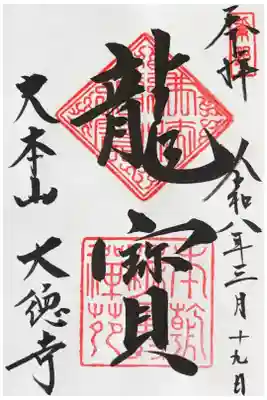 奉拝
令和八年三月十九日
龍寳
大本山
大徳寺
本朝
禅苑